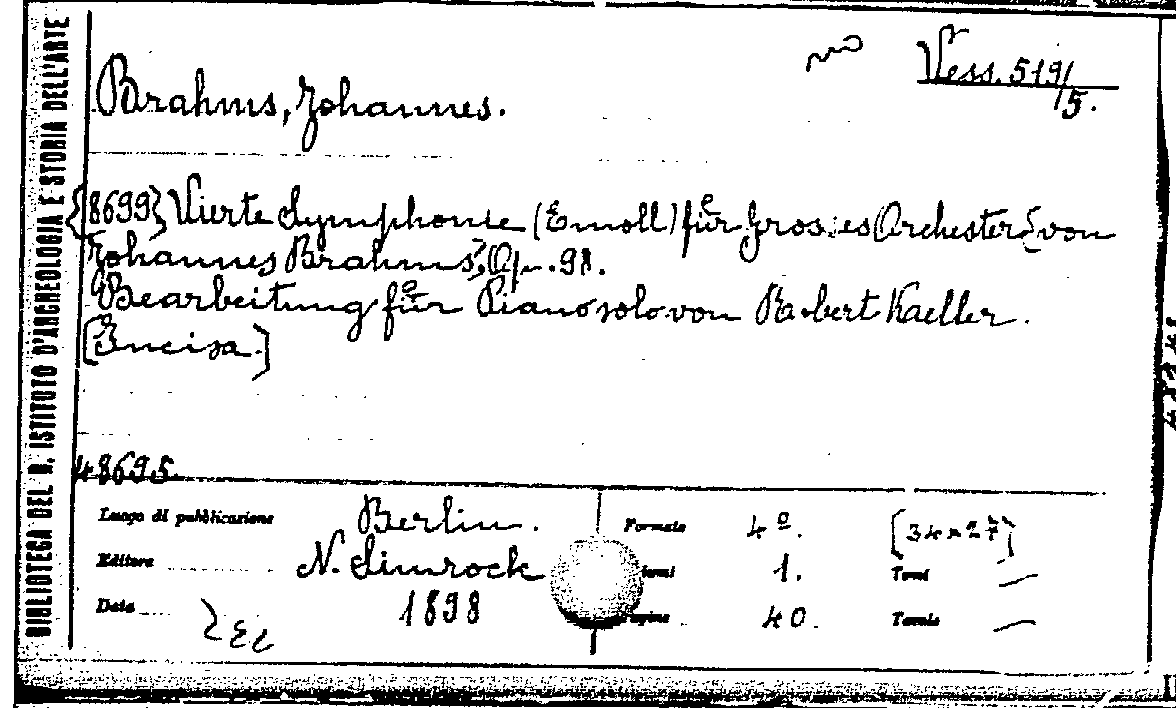 BIBLIOTECA DEL R. ISTITUTO D'ARCHEOLOGIA E STORIA DELL'ARTE
Vess. 519/5.
Brahms, Johannes.
{8699} Vierte Symphonie (Emoll) für grosses Orchester {von
Johannes Brahms}, Op. 98.
Bearbeitung für Piano solo von Robert Kaeller.
[Incisa.]
48695
Luogo di pubblicazione Berlin. Formato 4º. [34x27]
Editore N. Simrock 1. Tomi —
Data 1898 40. Tavole —